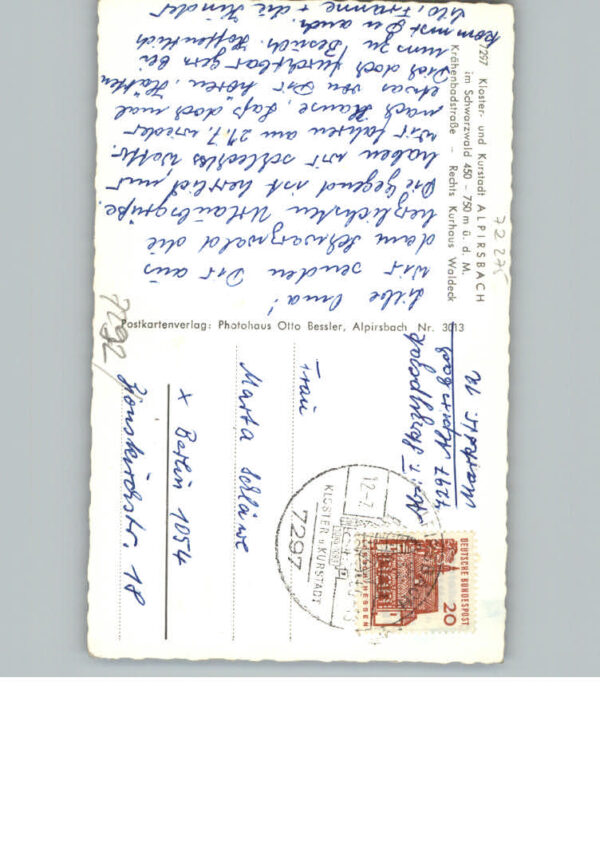 7297 Kloster- und Kurstadt ALPIRSBACH
im Schwarzwald 450 – 750 m ü. d. M.
Krähenbadstraße – Rechts Kurhaus Waldeck
72 275
Liebe Oma!
Wir senden Dir aus
dem Schwarzwald die
herzlichsten Urlaubsgrüße.
Die Gegend ist herrlich, nur
haben wir schlechtes Wetter.
Wir fahren am 21.7. wieder
nach Hause, laß doch mal
etwas von Dir hören, Hätten
Dich doch furchtbar gern bei
uns zu Besuch. Hoffentlich
kommst Du auch.
+ die Kinder
Postkartenverlag: Photohaus Otto Bessler, Alpirsbach Nr. 3013
7292
7297 Alpirsbach
Marktstr.
KLOSTER u KURSTADT
7297
12.-7.
DEUTSCHE BUNDESPOST
20
HESSEN
Frau
Marta
X Berlin 1054
18